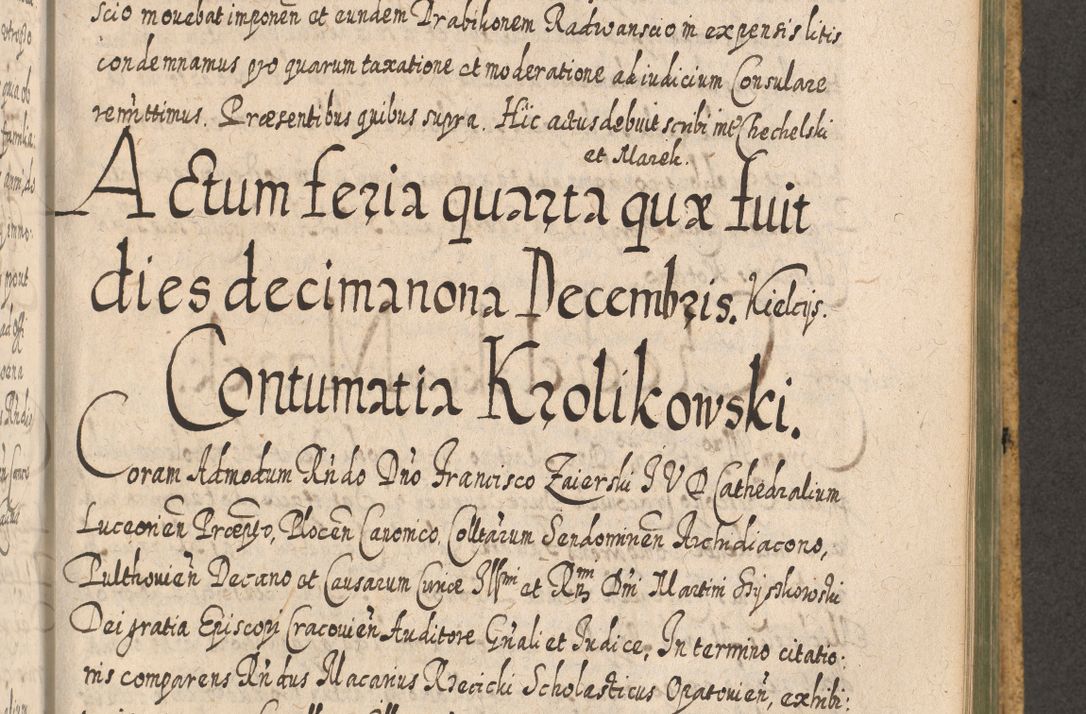 scio movebat imponen̄ et eundem Drabikonem Radwanscio in expensis litis
condemnamus pro quarum taxatione et moderatione ad iudicium Consulare
remittimus. Præsentibus quibus supra. Hic actus debuit scribi inter Chechelski
et Marek.
Actum feria quarta quæ fuit
dies decimanona Decembris. Kielcijs.
Contumatia Krolikowski.
Coram Admodum Rn̄do Dn̄o Francisco Zaierski I V D Cathedralium
Luceorien̄ Præpto, Plocen̄ Canonico, Colltarum Sendomirien̄ Archidiacono,
Pulthovien̄ Decano et Causarum Curiæ Illsmi et Rmi Dn̄i Martini Szyszkowski
Dei gratia Episcopi Cracovien̄ Auditore Gn̄ali et Iudice, In termino citatio:
nis comparens Rn̄dus Macarius Rzecicki Scholasticus Opatovien̄, exhibi: